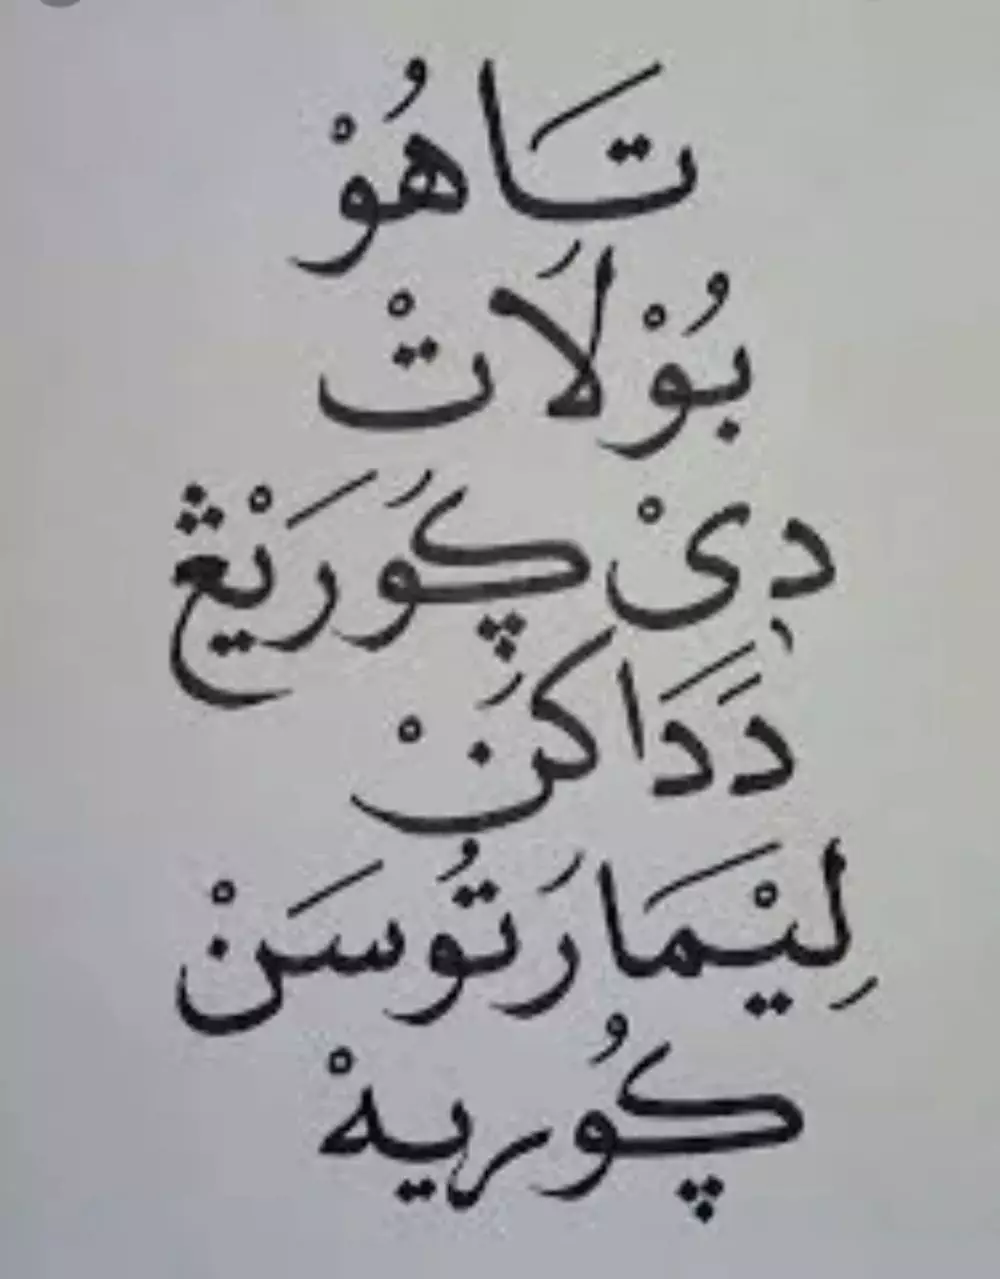 تَاهُوْ
بُوْلَاتْ
دِىْ ڮَورَيْڠ
دَدَاكَنْ
لِيْمَا رَتُوسَنْ
ڮُوريهْ